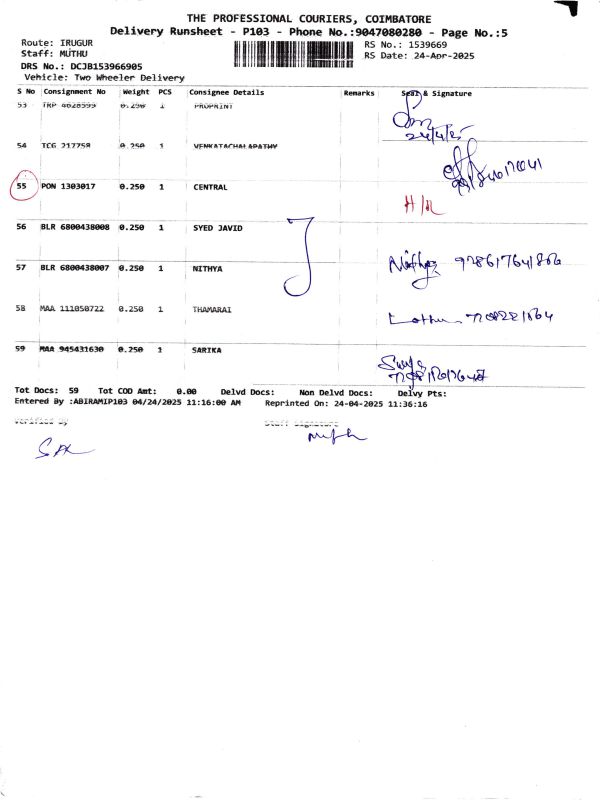 THE PROFESSIONAL COURIERS, COIMBATORE
Delivery Runsheet - P103 - Phone No.:9047080280 - Page No.:5
Route: IRUGUR RS No.: 1539669
Staff: MUTHU RS Date: 24-Apr-2025
DRS No.: DCJB153966905
Vehicle: Two Wheeler Delivery
S No Consignment No Weight PCS Consignee Details Remarks Seal & Signature
53 TRP 4628599 0.250 1 PROPRINT
24/4/25
54 TCG 217758 0.250 1 VENKATACHALAPATHY
55 PON 1303017 0.250 1 CENTRAL
56 BLR 6800438008 0.250 1 SYED JAVID
57 BLR 6800438007 0.250 1 NITHYA Nithya
58 MAA 111050722 0.250 1 THAMARAI
59 MAA 945431630 0.250 1 SARIKA
Tot Docs: 59 Tot COD Amt: 0.00 Delvd Docs: Non Delvd Docs: Delvy Pts:
Entered By :ABIRAMIP103 04/24/2025 11:16:00 AM Reprinted On: 24-04-2025 11:36:16
Verified By Staff Signature